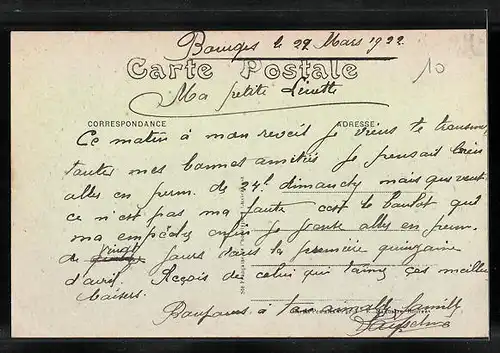 Bourges le 29 Mars 1922
10
Carte Postale
Ma petite Linette
CORRESPONDANCE ADRESSE
Ce matin à mon reveil je viens te transm
toutes mes bonnes amitiés je pensait bien
alles en perm. de 24h dimanche mais que veut
ce n'est pas ma faute c'est le boulot qui
ma empêchez enfin je pense alles en perm.
de vingt jours dans la première quinzaine
d'avril. Reçois de celui qui t'aime ces meilleu
baisers.
Bonjours à ton aimable famille